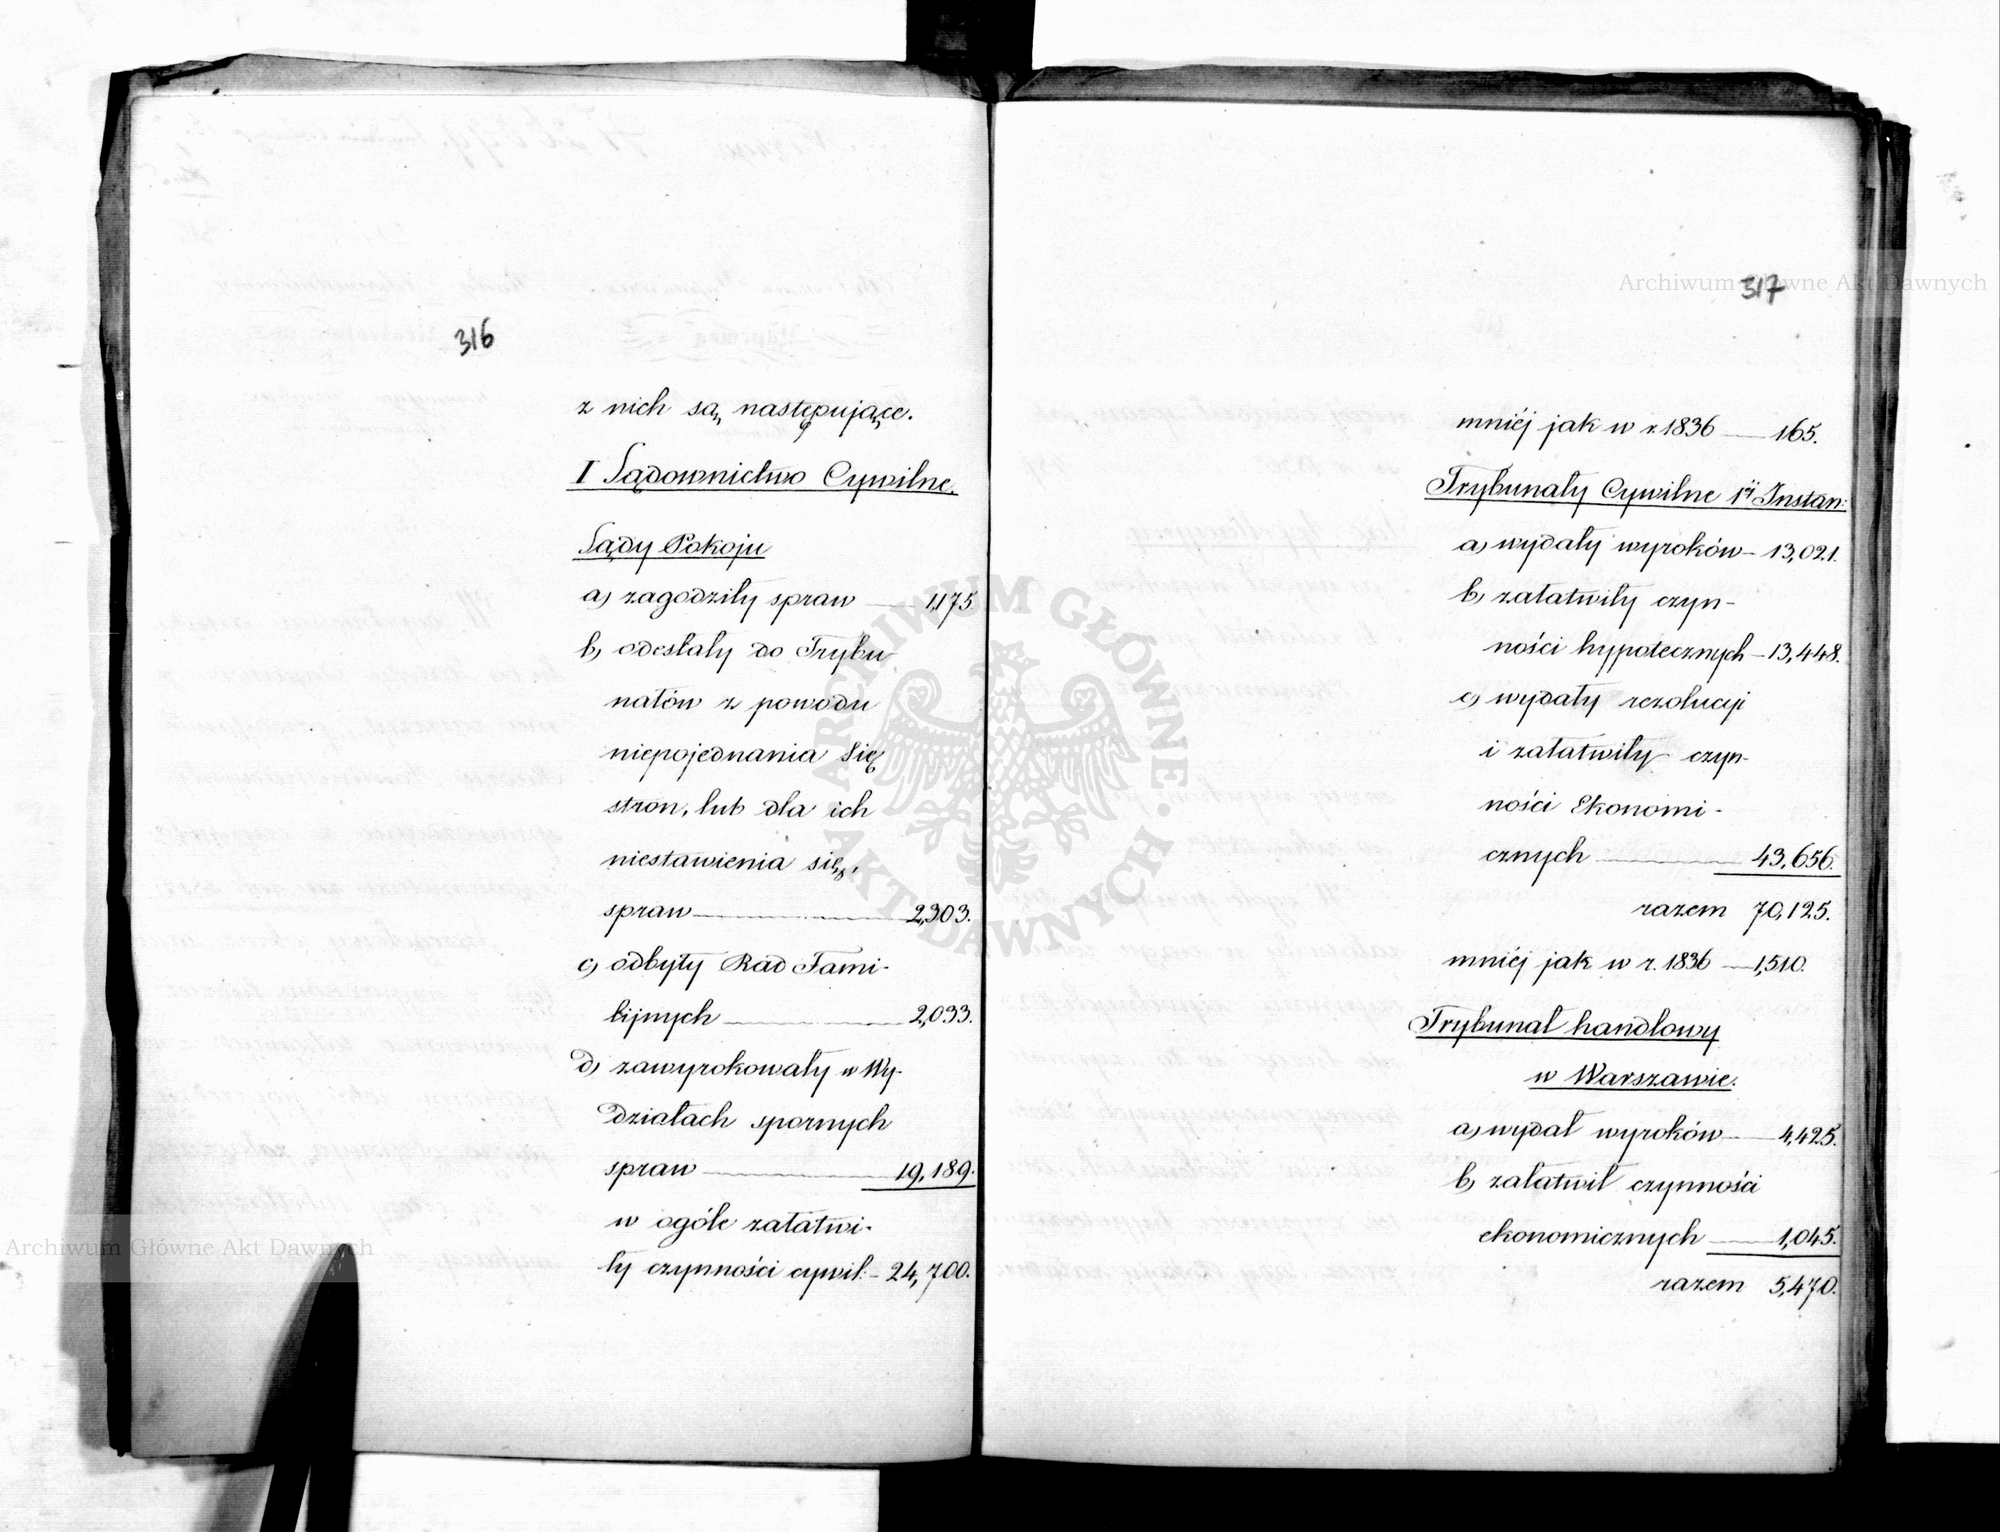 316
z nich są następujące.
I Sądownictwo Cywilne.
Sądy Pokoju
a) zagodziły spraw — 1,175
b) odesłały do Trybu
nałów z powodu
niepojednania się
stron, lub dla ich
niestawienia się,
spraw — 2,303.
c) odbyły Rad Fami-
lijnych — 2,033.
d) zawyrokowały w Wy-
działach spornych
spraw — 19,189.
w ogóle załatwi-
ły czynności cywil: — 24,700.
317
mniéj jak w r. 1836 — 165.
Trybunały Cywilne 1éj Instan:
a) wydały wyroków — 13,021.
b) załatwiły czyn-
ności hypotecznych — 13,448.
c) wydały rezolucji
i załatwiły czyn-
ności Ekonomi-
cznych — 43,656.
razem 70,125.
mniéj jak w r. 1836 — 1,510.
Trybunał handlowy
w Warszawie.
a) wydał wyroków — 4,425.
b) załatwił czynności
ekonomicznych — 1,045.
razem 5,470.
Archiwum Główne Akt Dawnych
ARCHIWUM GŁÓWNE AKT DAWNYCH
Archiwum Główne Akt Dawnych